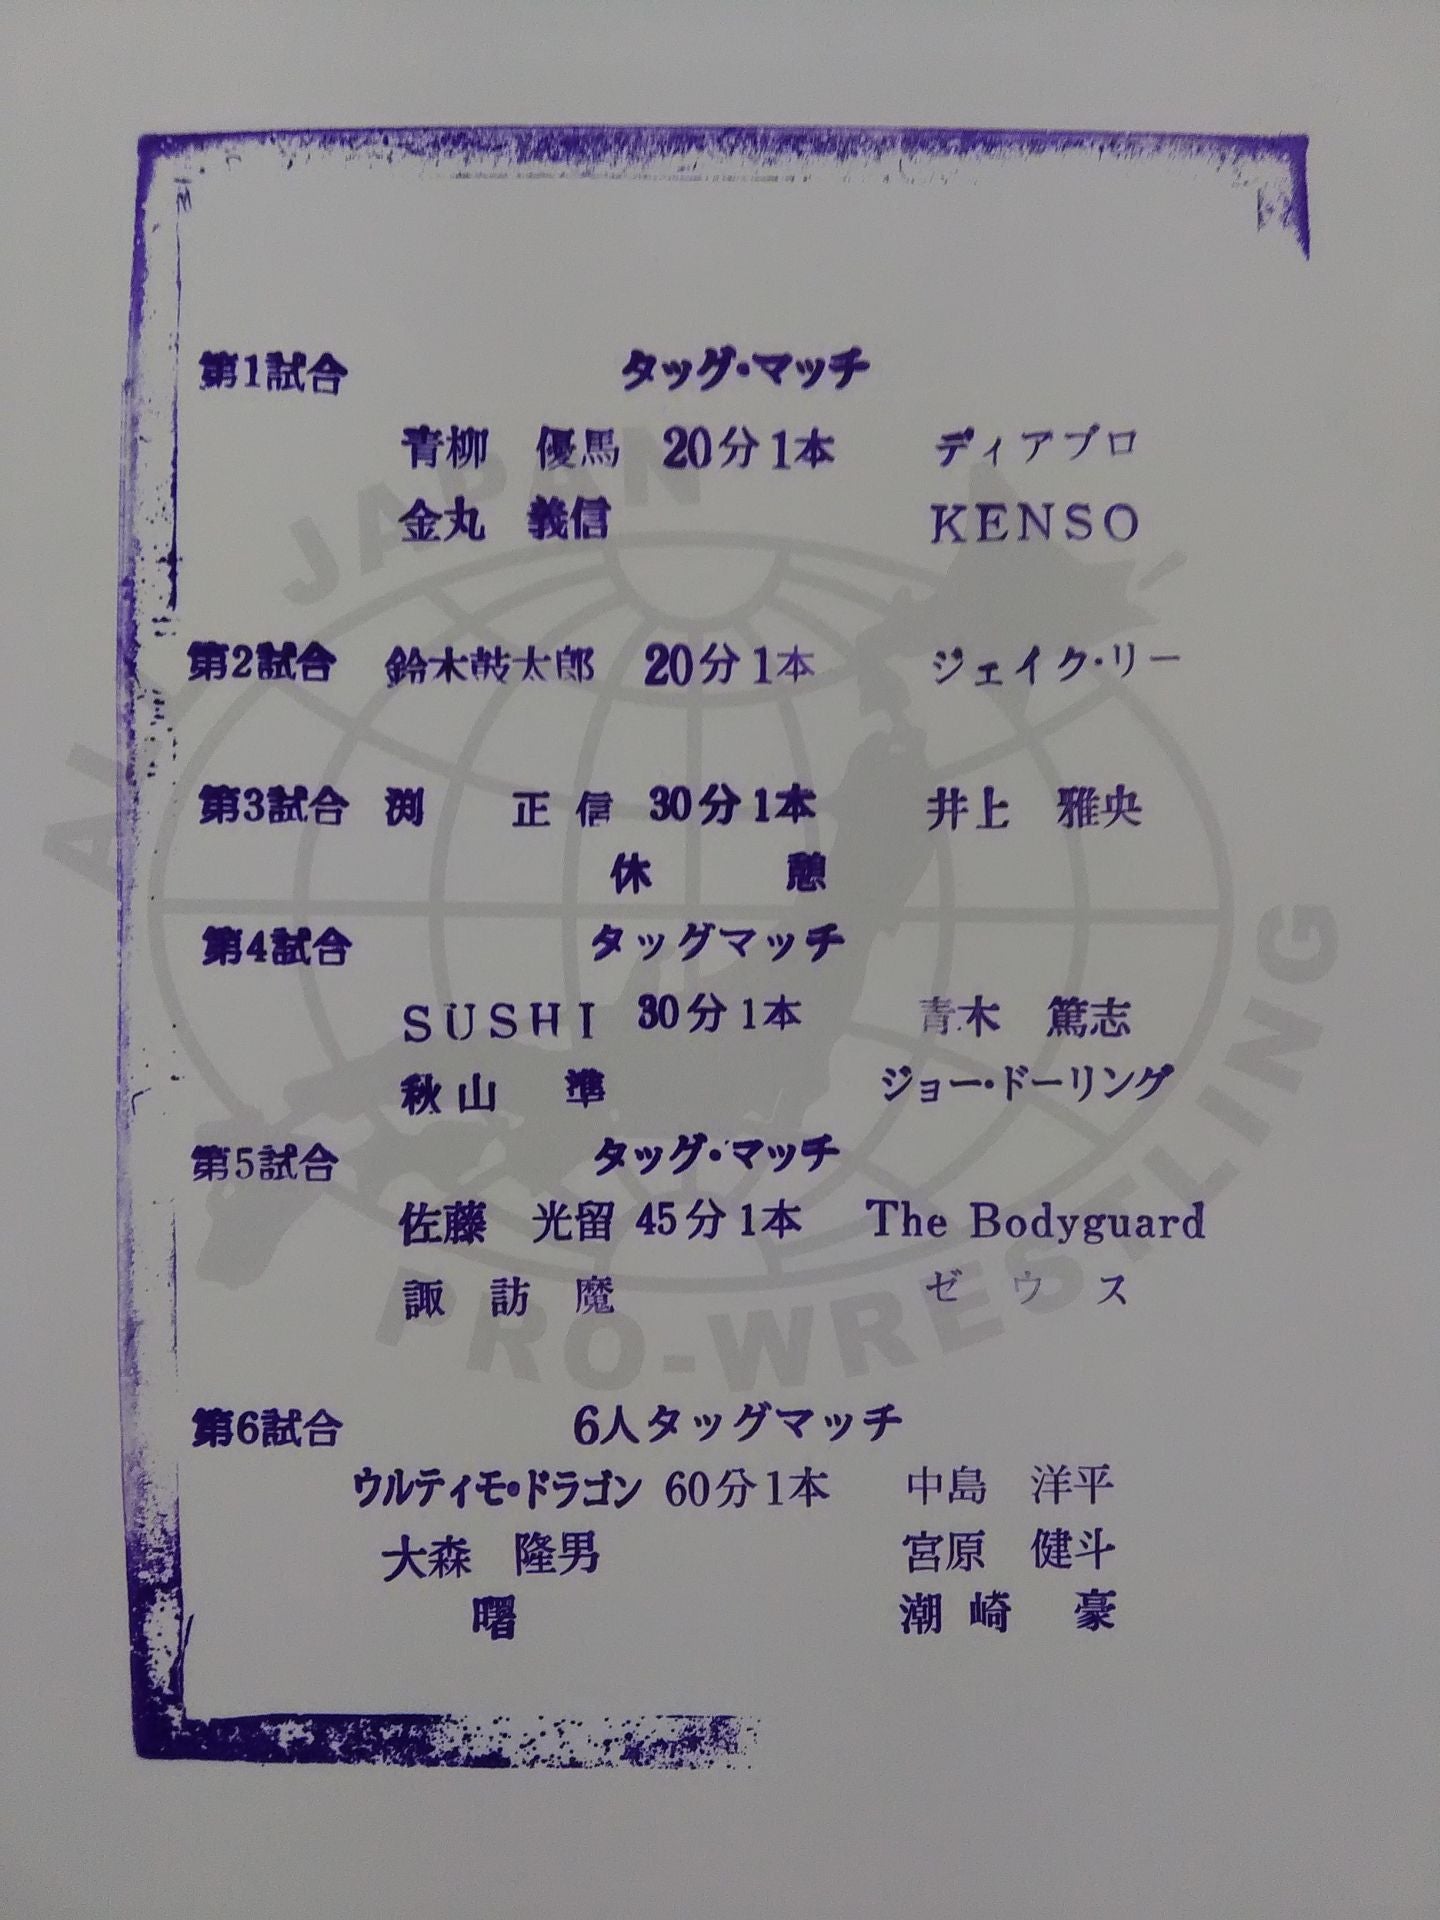 ALL JAPAN PRO-WRESTLING
第1試合 タッグ・マッチ
青柳 優馬 20分1本 ディアブロ
金丸 義信 KENSO
第2試合 鈴木鼓太郎 20分1本 ジェイク・リー
第3試合 渕 正信 30分1本 井上 雅央
休 憩
第4試合 タッグマッチ
SUSHI 30分1本 青木 篤志
秋山 準 ジョー・ドーリング
第5試合 タッグ・マッチ
佐藤 光留 45分1本 The Bodyguard
諏訪魔 ゼウス
第6試合 6人タッグマッチ
ウルティモ・ドラゴン 60分1本 中島 洋平
大森 隆男 宮原 健斗
曙 潮崎 豪